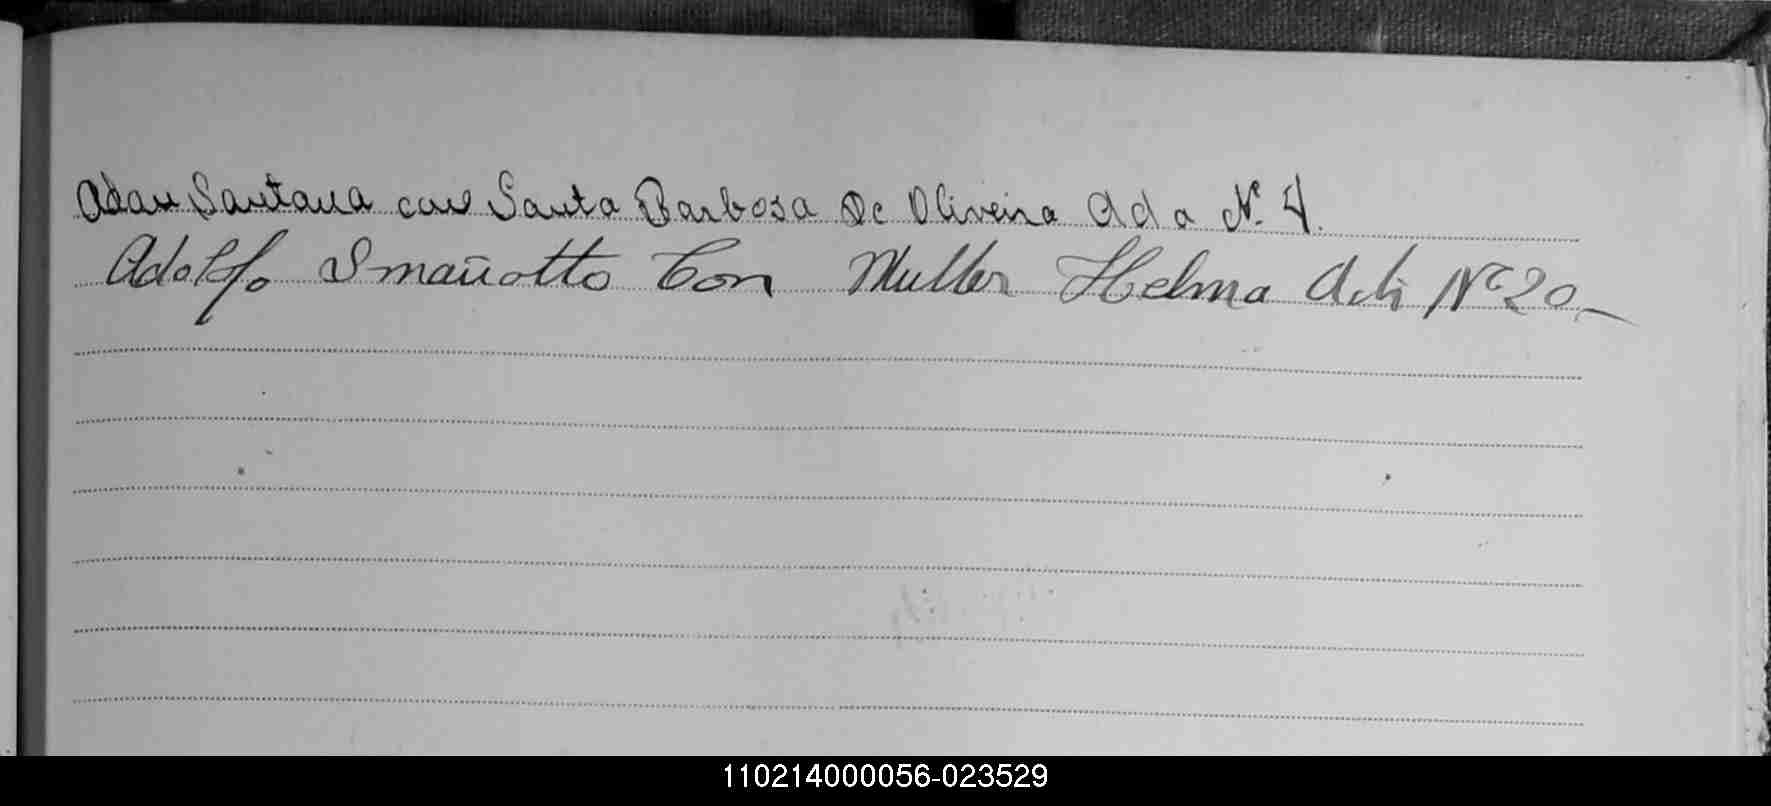 Adau Santana con Santa Barbosa De Oliveira Ada N° 4.
Adolfo Smañotto Con Muller Helma Acti Nº 20.-
110214000056-023529